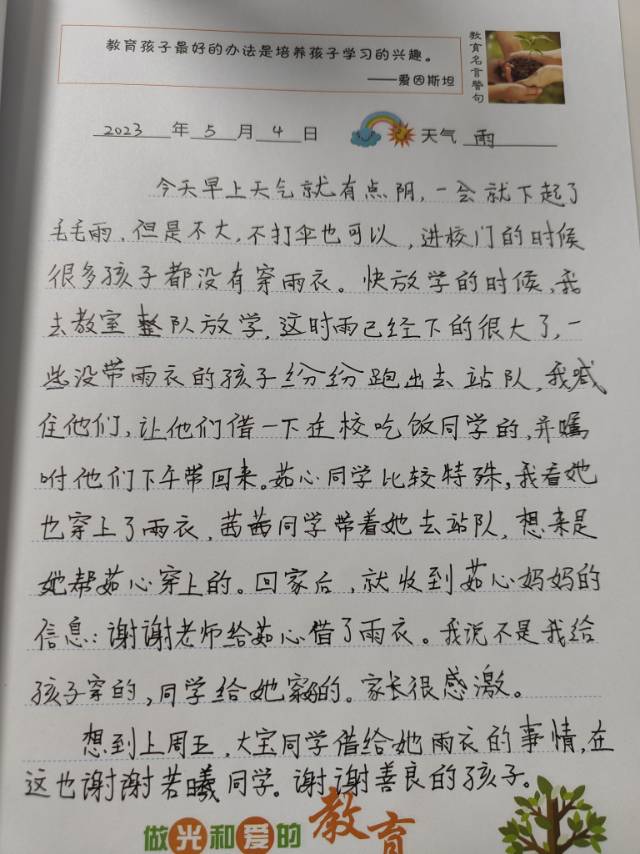 教育孩子最好的办法是培养孩子学习的兴趣。
——爱因斯坦
教育名言警句
2023年5月4日 天气 雨
今天早上天气就有点阴，一会就下起了
毛毛雨，但是不大，不打伞也可以，进校门的时候
很多孩子都没有穿雨衣。快放学的时候，我
去教室整队放学，这时雨已经下的很大了，一
些没带雨衣的孩子纷纷跑出去站队，我喊
住他们，让他们借一下在校吃饭同学的，并嘱
咐他们下午带回来。茹心同学比较特殊，我看她
也穿上了雨衣，茜茜同学带着她去站队，想来是
她帮茹心穿上的。回家后，就收到茹心妈妈的
信息：谢谢老师给茹心借了雨衣。我说不是我给
孩子穿的，同学给她穿的。家长很感激。
想到上周五，大宝同学借给她雨衣的事情，在
这也谢谢若曦同学。谢谢善良的孩子。
做光和爱的教育